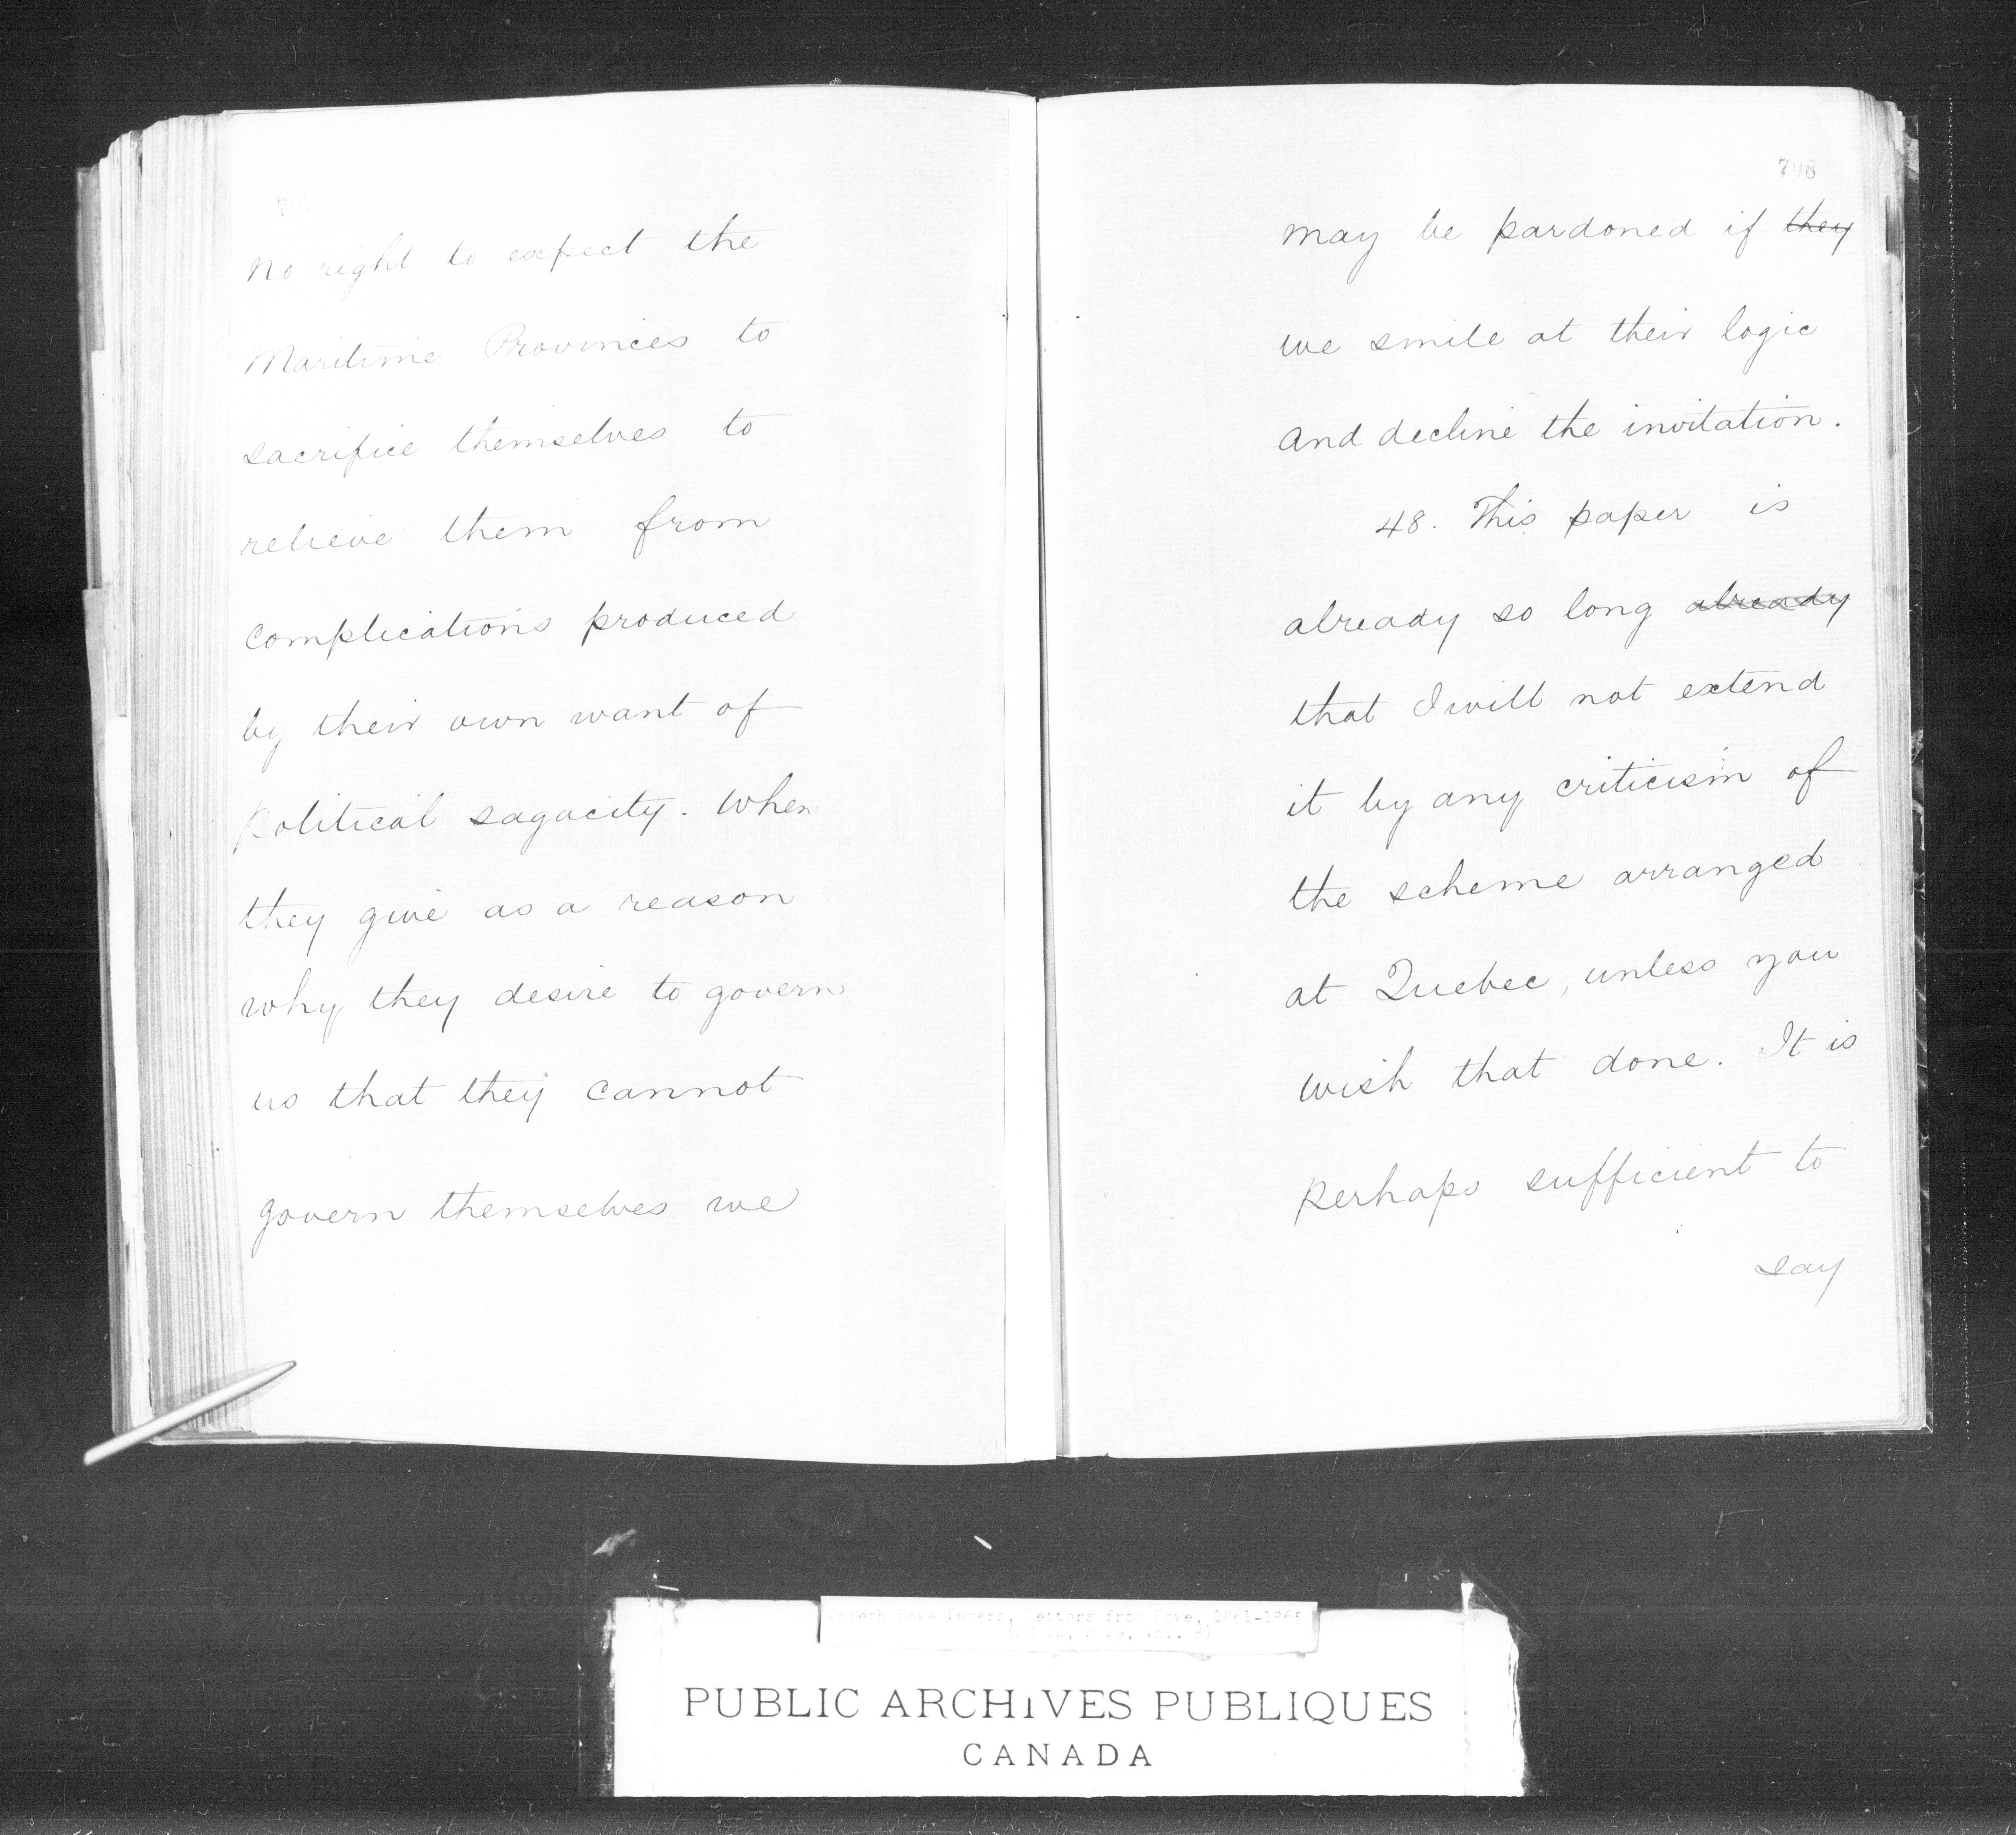 no right to expect the
Maritime Provinces to
sacrifice themselves to
relieve them from
complications produced
by their own want of
political sagacity. When
they give as a reason
why they desire to govern
us that they cannot
govern themselves we
798
may be pardoned if they
we smile at their logic
and decline the invitation.
48. This paper is
already so long already
that I will not extend
it by any criticism of
the scheme arranged
at Quebec, unless you
wish that done. It is
perhaps sufficient to
say
Joseph Howe Papers, Letters from Howe, 1861-1865
PUBLIC ARCHIVES PUBLIQUES
CANADA